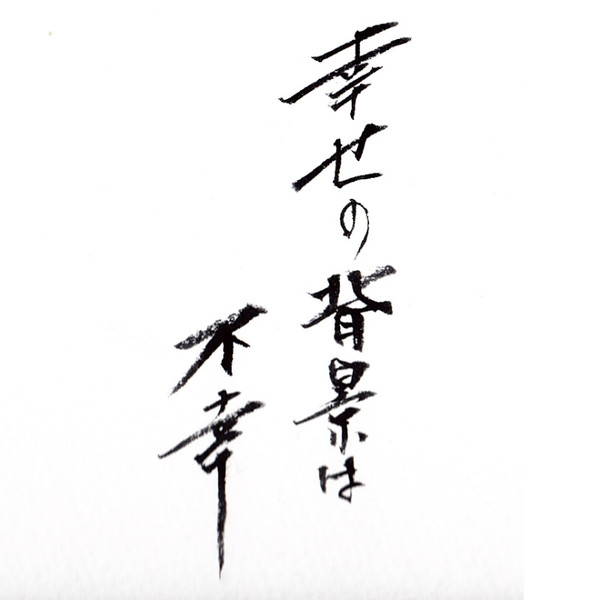 幸せの背景は
不幸